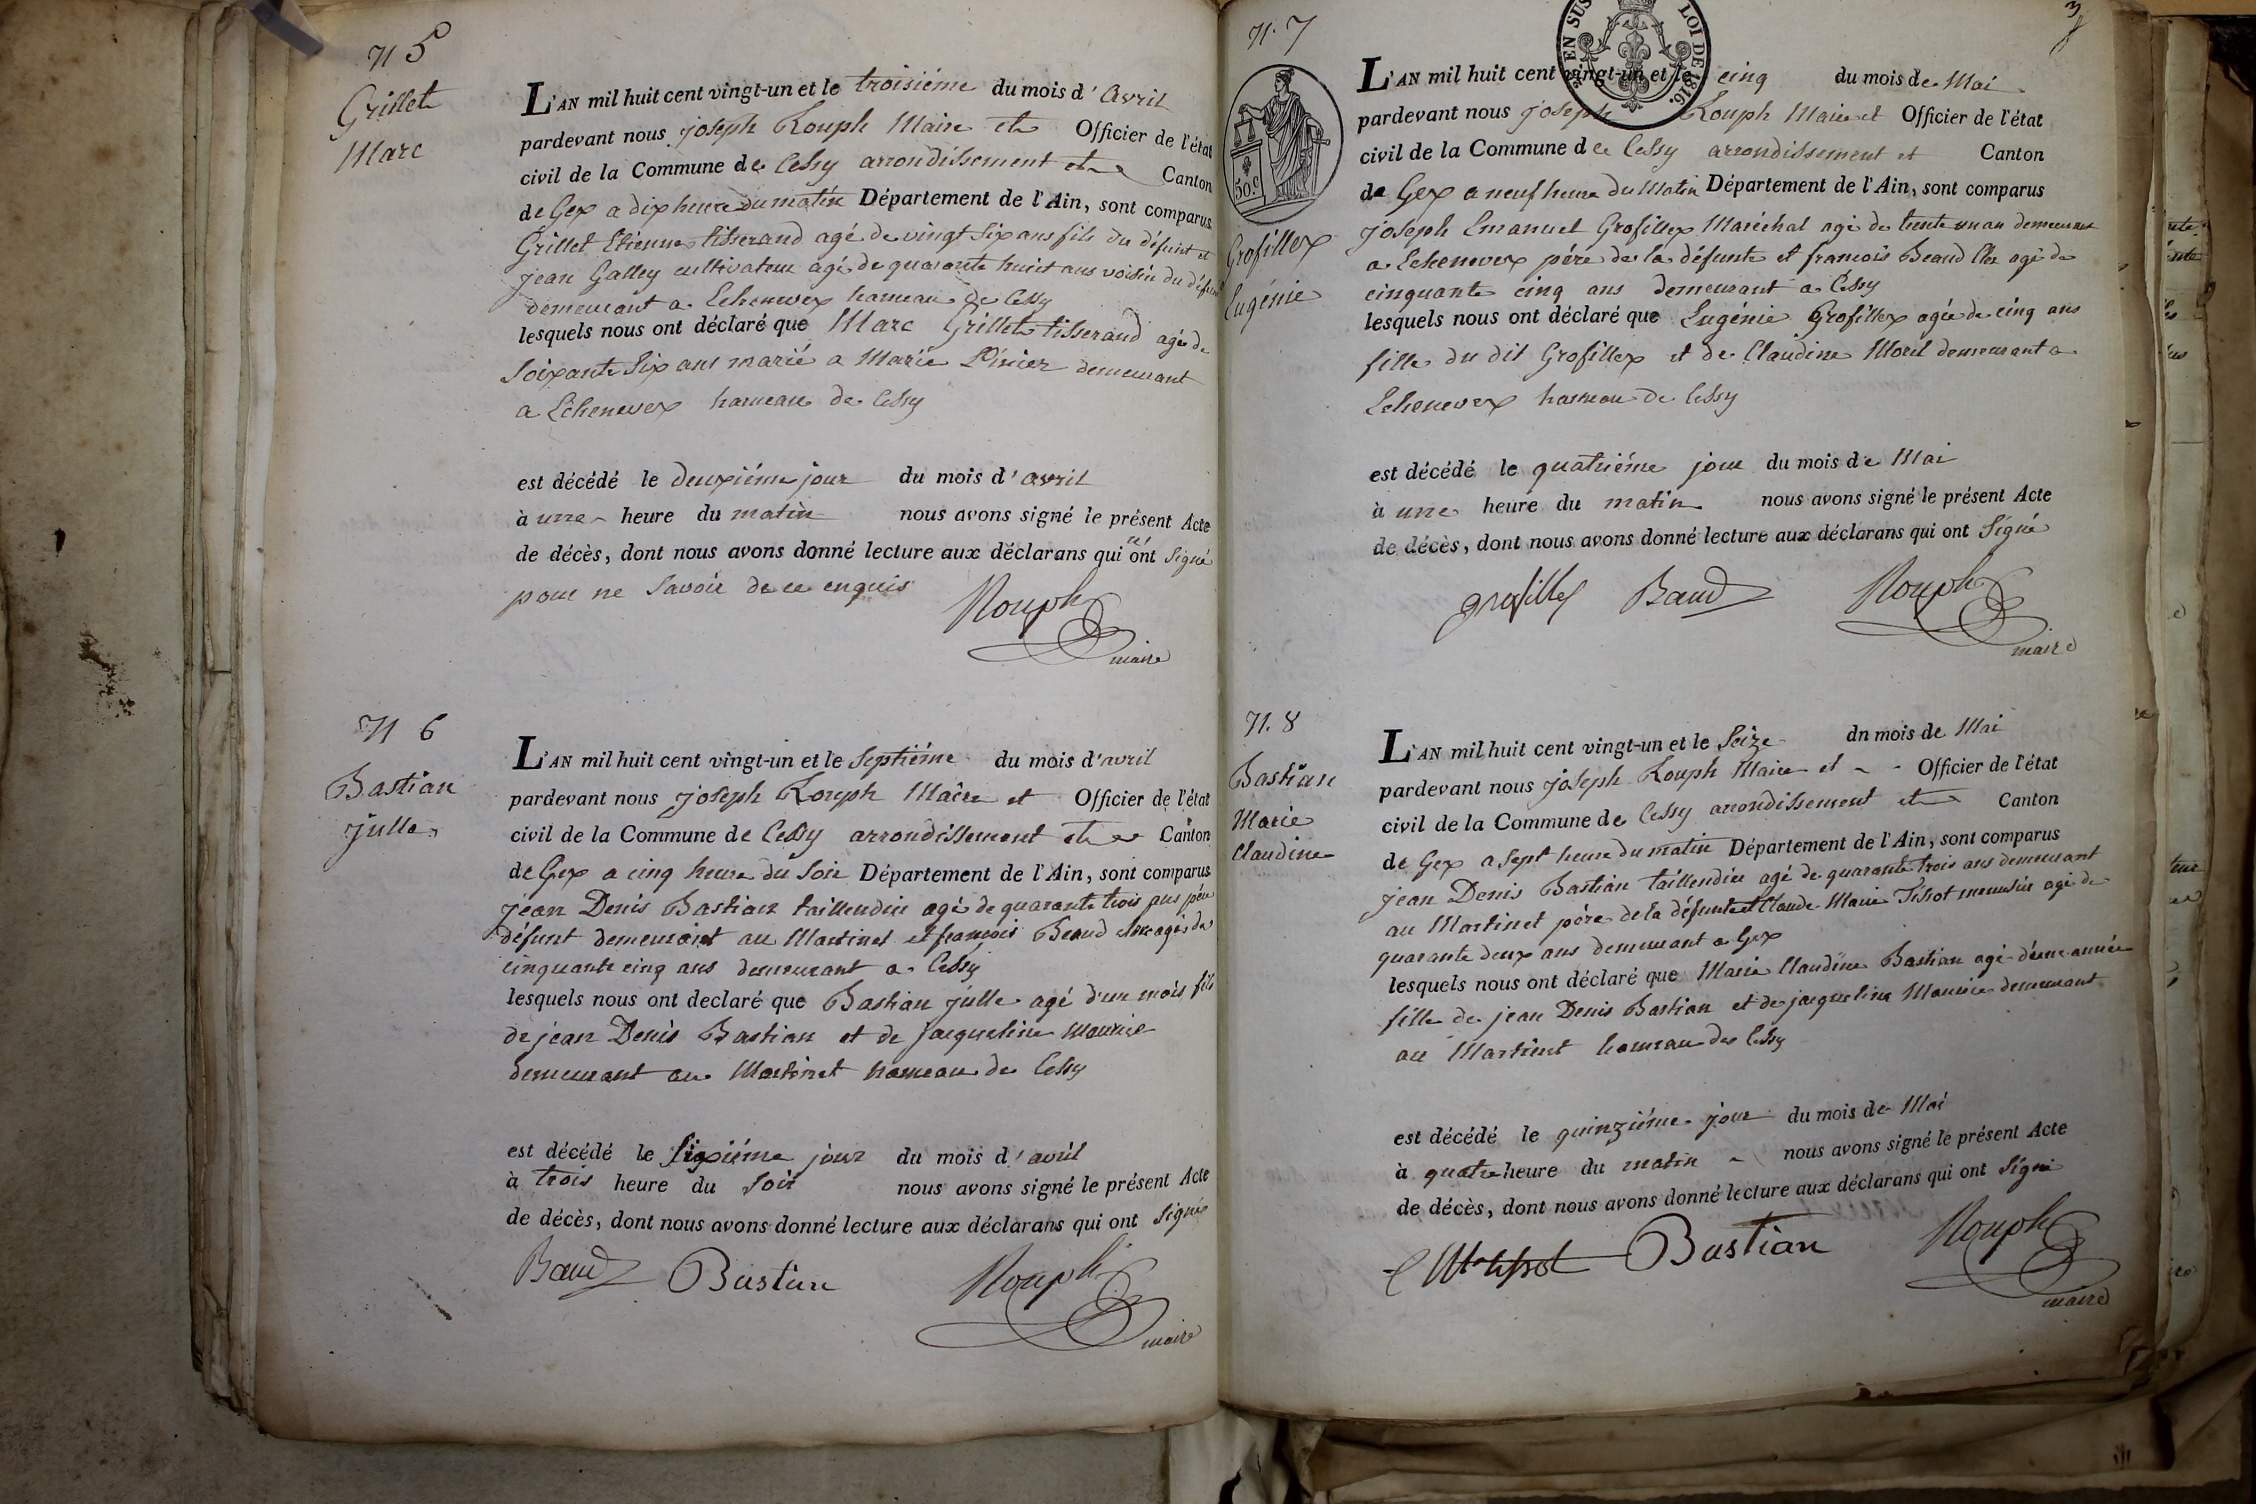 N 5
Grillet
Marc
L'AN mil huit cent vingt-un et le troisiéme du mois d'Avril
pardevant nous joseph Rouph Maire et Officier de l'état
civil de la Commune de Cessy arrondissement et Canton
de Gex a dix heure du matin Département de l'Ain, sont comparus
Grillet Etienne tisserand agé de vingt six ans fils du défunt et
jean Galley cultivateur agé de quarante huit ans voisin du défunt
demeurant a Echenevex hameau de Cessy
lesquels nous ont déclaré que Marc Grillet tisserand agé de
soixante six ans marié a Marie demeurant
a Echenevex hameau de Cessy
est décédé le deuxiéme jour du mois d'avril
à une heure du matin nous avons signé le présent Acte
de décès, dont nous avons donné lecture aux déclarans qui n'ont signé
pour ne savoir de ce enquis
Rouph
maire
N 6
Bastian
julle
L'AN mil huit cent vingt-un et le septiéme du mois d'avril
pardevant nous joseph Rouph Maire et Officier de l'état
civil de la Commune de Cessy arrondissement et Canton
de Gex a cinq heure du soir Département de l'Ain, sont comparus
jean Denis Bastian taillendier agé de quarante trois ans pére
défunt demeurant au Martinet et francois Beaud agé de
cinquante cinq ans demeurant a Cessy
lesquels nous ont declaré que Bastian julle agé d'un mois fils
de jean Denis Bastian et de jacqueline Maurice
demeurant au Martinet hameau de Cessy
est décédé le sixiéme jour du mois d'avril
à trois heure du soir nous avons signé le présent Acte
de décès, dont nous avons donné lecture aux déclarans qui ont signé
Baud Bastian Rouph
maire
3
EN SUS LOI DE 1816.
N. 7
50.c
Grofillex
Eugénie
L'AN mil huit cent vingt-un et le cinq du mois de Mai
pardevant nous joseph Rouph Maire et Officier de l'état
civil de la Commune de Cessy arrondissement et Canton
de Gex a neuf heure du Matin Département de l'Ain, sont comparus
joseph Emanuel Grofillex Maréchal agé de trente un an demeurant
a Echenevex pére de la défunte et francois Beaud agé de
cinquante cinq ans demeurant a Cessy
lesquels nous ont déclaré que Eugénie Grofillex agée de cinq ans
fille du dit Grofillex et de Claudine Moril demeurant a
Echenevex hameau de Cessy
est décédé le quatriéme jour du mois de Mai
à une heure du matin nous avons signé le présent Acte
de décès, dont nous avons donné lecture aux déclarans qui ont signé
grofillex Baud Rouph
maire
N. 8
Bastian
Marie
Claudine
L'AN mil huit cent vingt-un et le seize dn mois de Mai
pardevant nous joseph Rouph Maire et Officier de l'état
civil de la Commune de Cessy arrondissement et Canton
de Gex a sept heure du matin Département de l'Ain, sont comparus
jean Denis Bastian taillendier agé de quarante trois ans demeurant
au Martinet pére de la défunte et Claude Marie Tissot menusier agé de
quarante deux ans demeurant a Gex
lesquels nous ont déclaré que Marie Claudine Bastian agé d'une année
fille de jean Denis Bastian et de jacqueline Maurice demeurant
au Martinet hameau de Cessy
est décédé le quinziéme jour du mois de Mai
à quatre heure du matin nous avons signé le présent Acte
de décès, dont nous avons donné lecture aux déclarans qui ont signé
Bastian Rouph
maire